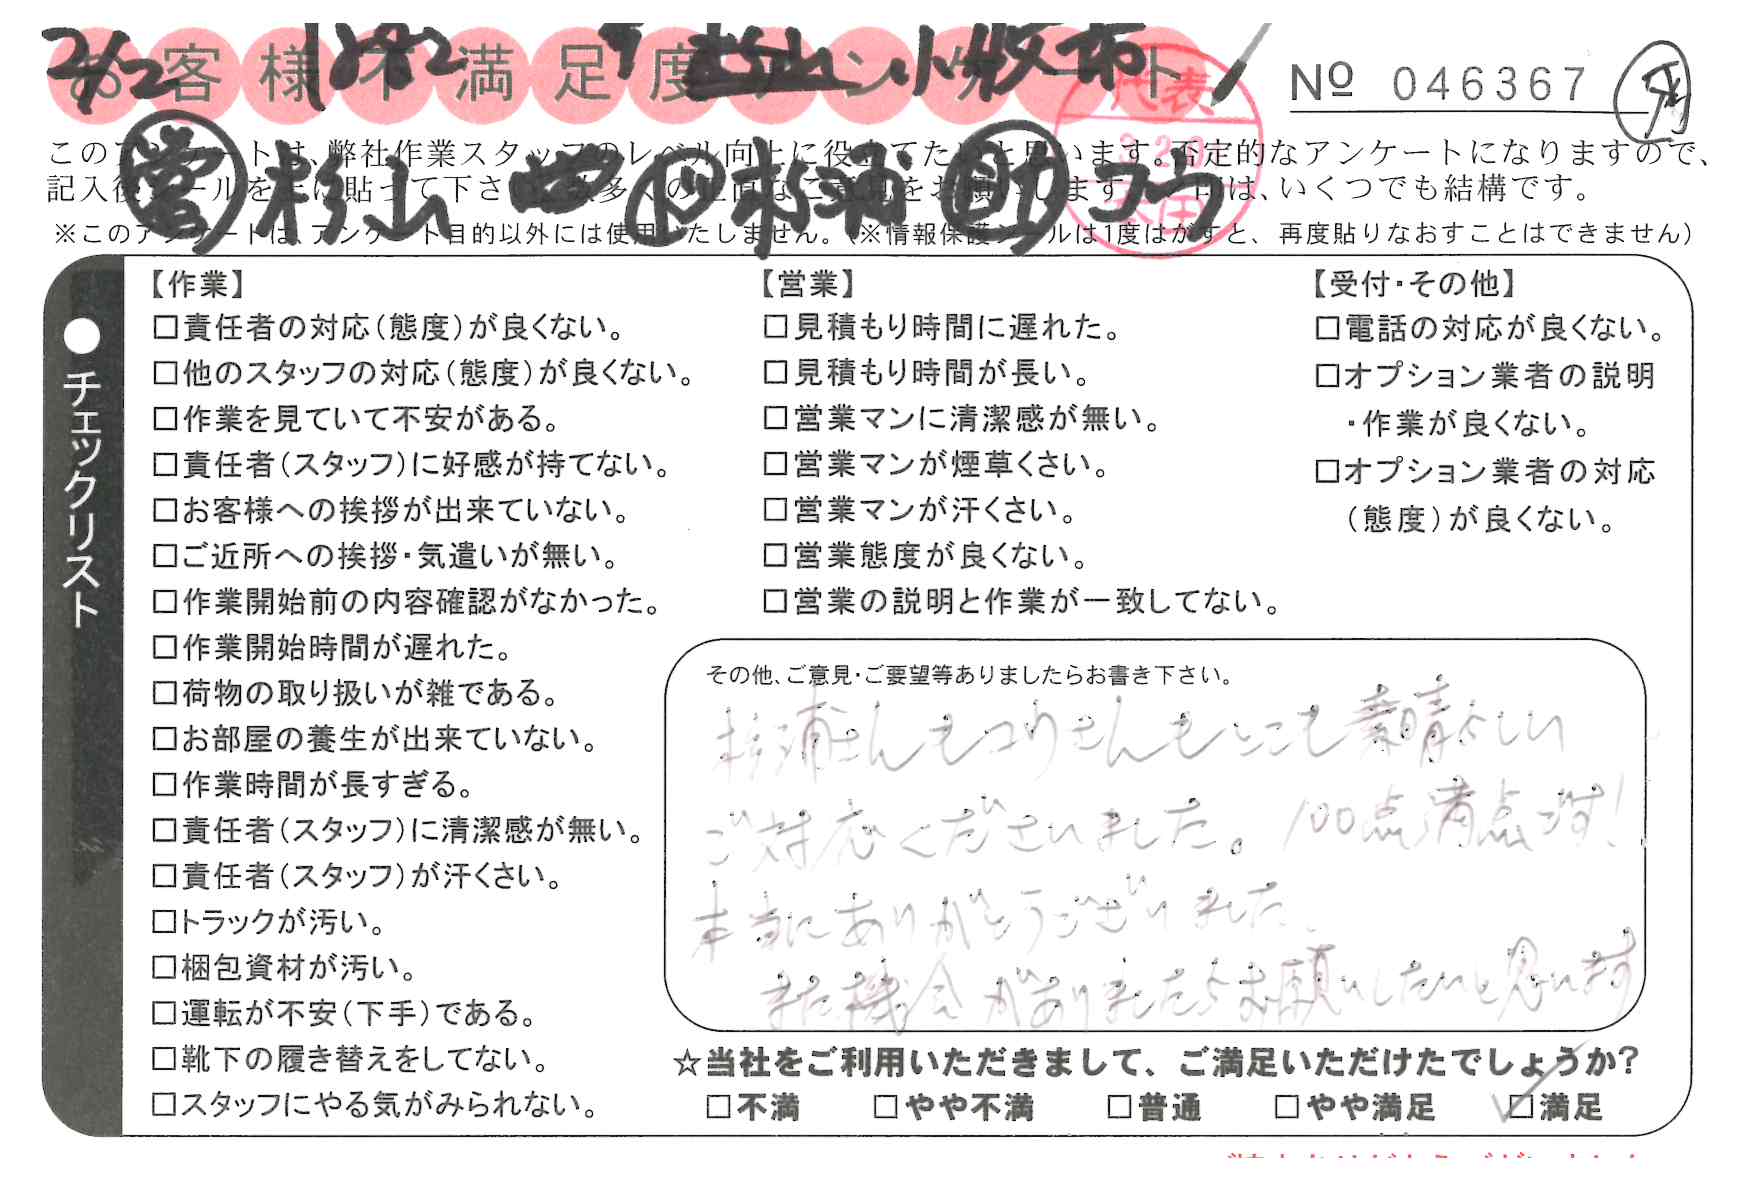 お客様不満足度アンケート
2/2
Nº 046367
このアンケートは、弊社作業スタッフのレベル向上に役立てたいと思います。否定的なアンケートになりますので、
記入後シールを上に貼って下さい。数多くの正直なご意見をお願いします。✓印は、いくつでも結構です。
※このアンケートは、アンケート目的以外には使用いたしません。(※情報保護シールは1度はがすと、再度貼りなおすことはできません)
営 杉山 杉浦 助 コウ
代表
3.20
本田
●チェックリスト
【作業】
□責任者の対応(態度)が良くない。
□他のスタッフの対応(態度)が良くない。
□作業を見ていて不安がある。
□責任者(スタッフ)に好感が持てない。
□お客様への挨拶が出来ていない。
□ご近所への挨拶・気遣いが無い。
□作業開始前の内容確認がなかった。
□作業開始時間が遅れた。
□荷物の取り扱いが雑である。
□お部屋の養生が出来ていない。
□作業時間が長すぎる。
□責任者(スタッフ)に清潔感が無い。
□責任者(スタッフ)が汗くさい。
□トラックが汚い。
□梱包資材が汚い。
□運転が不安(下手)である。
□靴下の履き替えをしてない。
□スタッフにやる気がみられない。
【営業】
□見積もり時間に遅れた。
□見積もり時間が長い。
□営業マンに清潔感が無い。
□営業マンが煙草くさい。
□営業マンが汗くさい。
□営業態度が良くない。
□営業の説明と作業が一致してない。
【受付・その他】
□電話の対応が良くない。
□オプション業者の説明
・作業が良くない。
□オプション業者の対応
(態度)が良くない。
その他、ご意見・ご要望等ありましたらお書き下さい。
杉浦さんもコウさんもとても素晴らしい
ご対応くださいました。100点満点です!
本当にありがとうございました。
また機会がありましたらお願いしたいと思います
☆当社をご利用いただきまして、ご満足いただけたでしょうか?
□不満 □やや不満 □普通 □やや満足 ☑満足